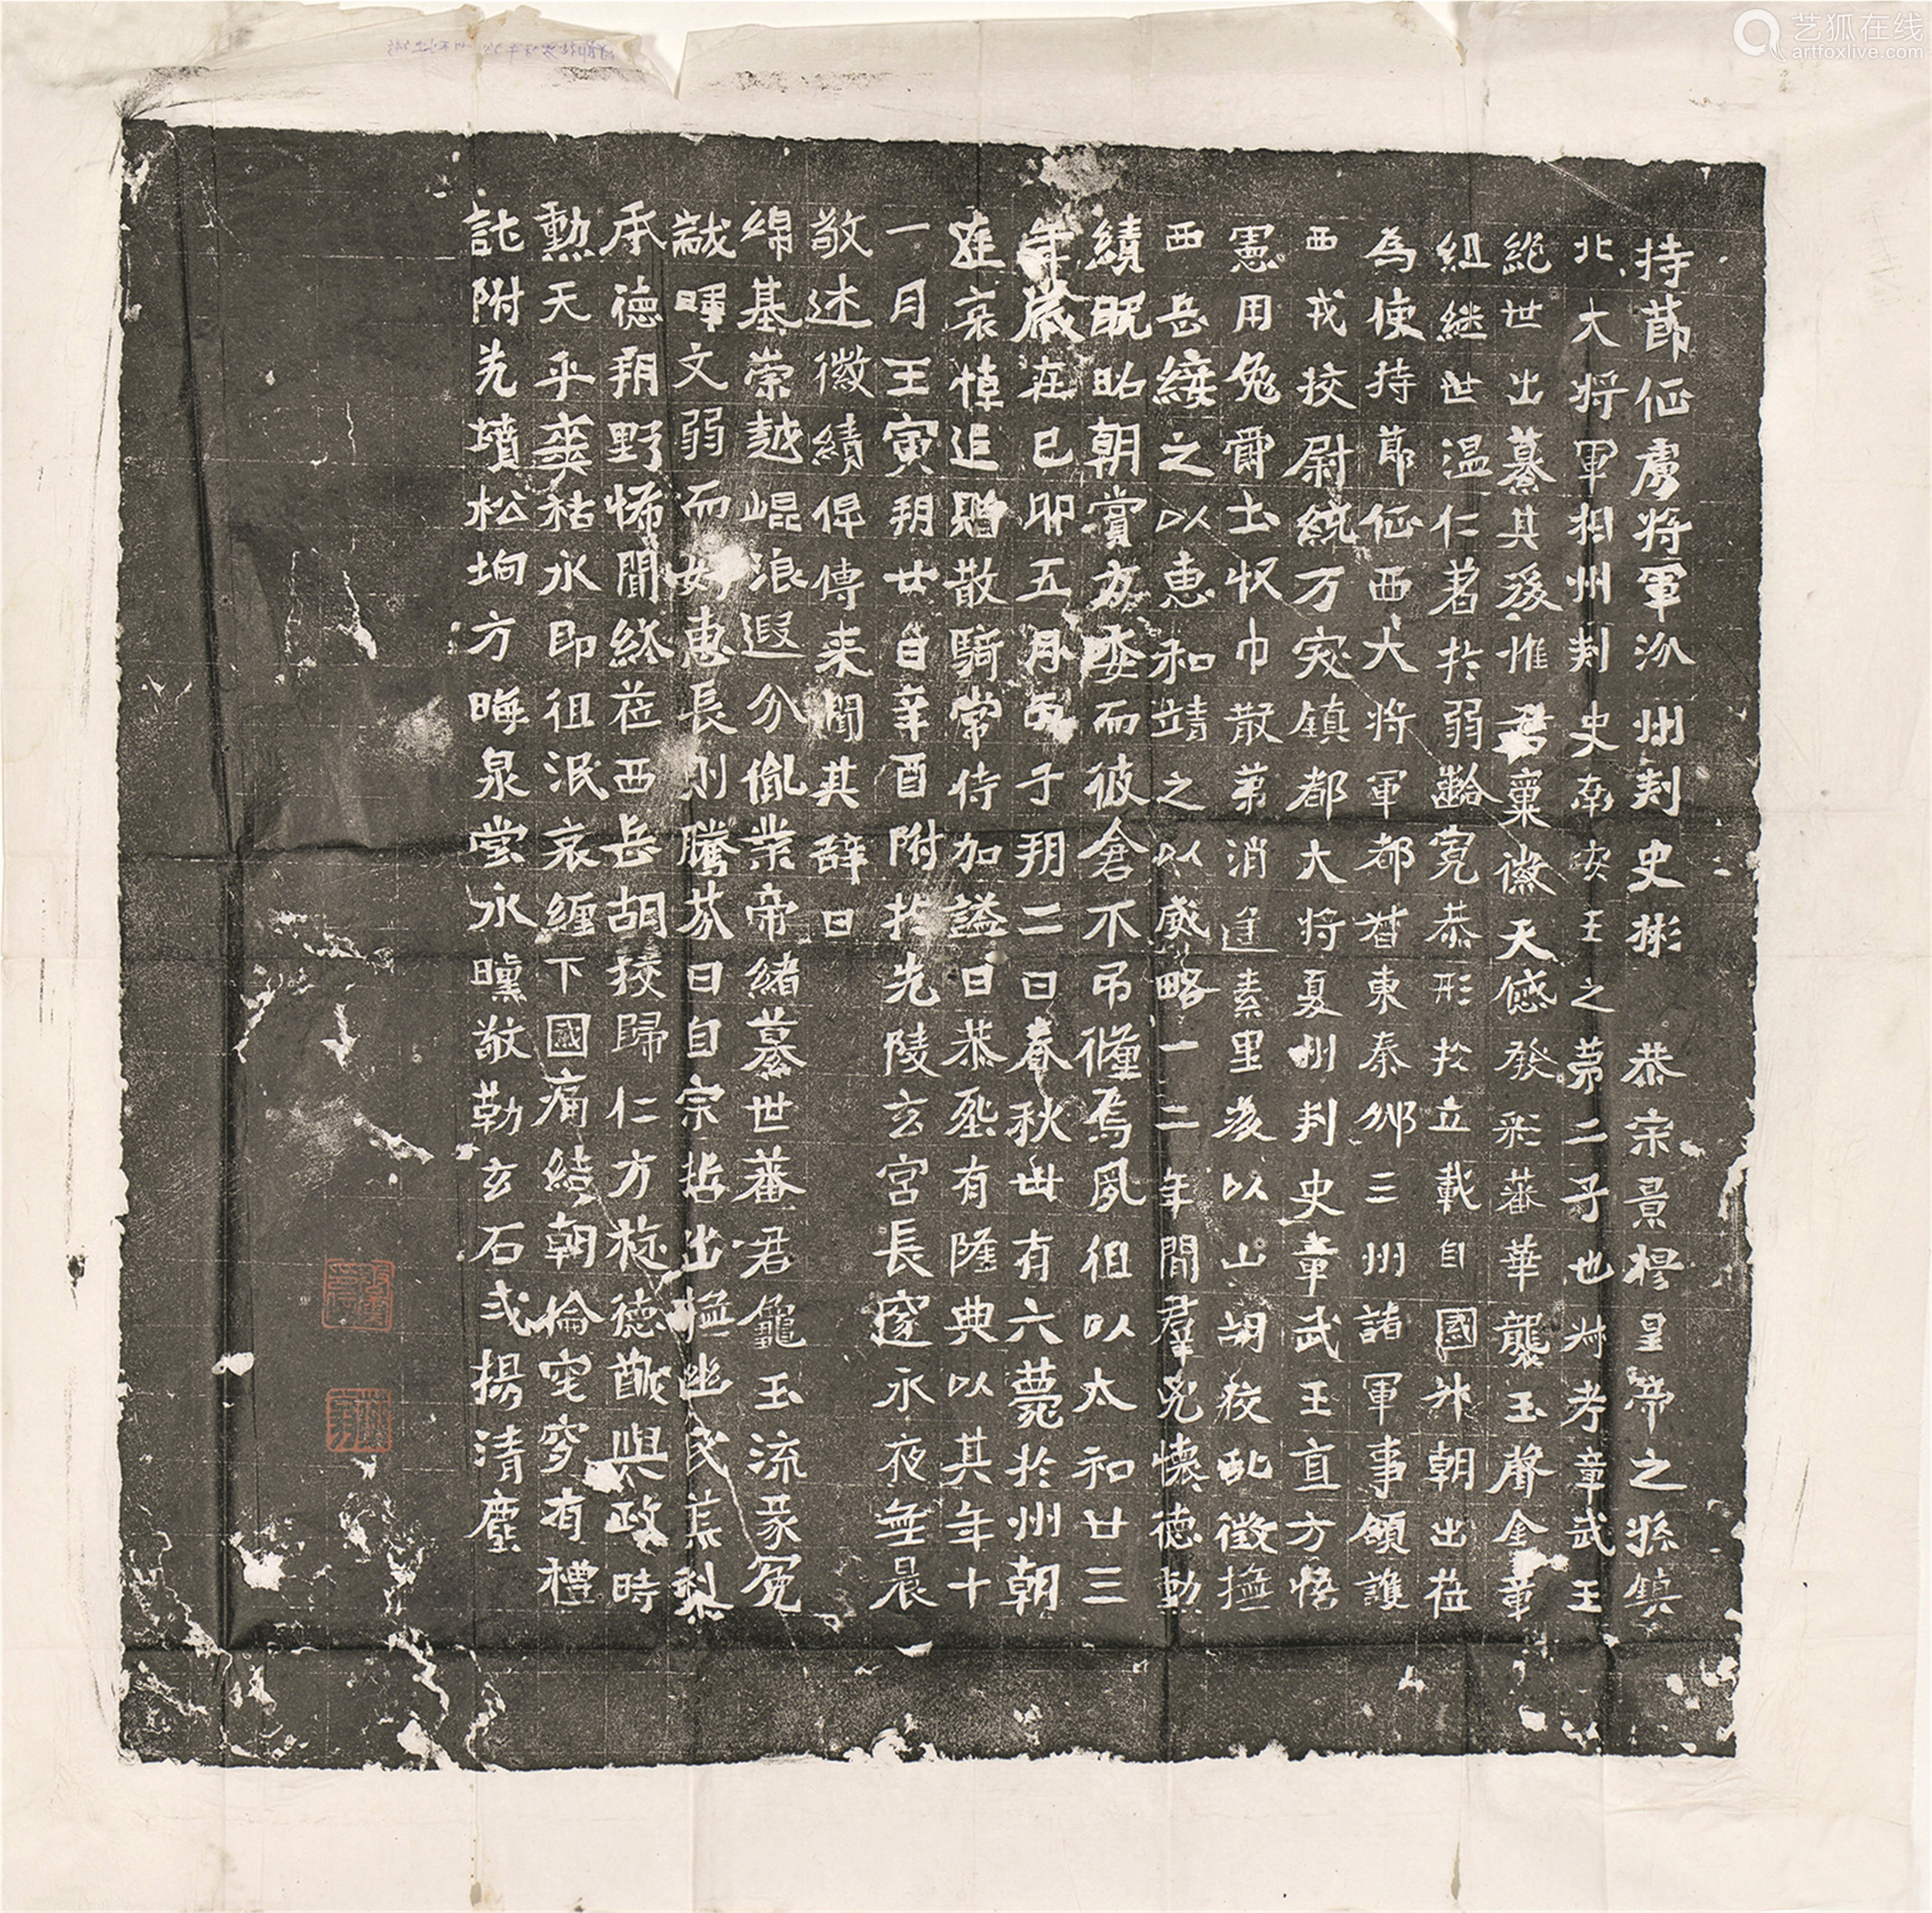 持節征虜将軍汾州刺史彬 恭宗景穆皇帝之孫鎮
北大将軍相州刺史南安王之第二子也叔考章武王
絕世出纂其後惟君稟徽天感發彩蕃華襲玉聲金章
組繼世温仁著於弱齡寬恭形於立載自國升朝出莅
為使持節征西大将軍都督東秦邠三州諸軍事領護
西戎挍尉統万突鎮都大将夏州刺史章武王直方悟
憲用免爵土收巾散苐消遥素里後以山胡校乱徵撫
西岳綏之以惠和靖之以威略一二年間羣兇懷德勳
績既昭朝賞方委而彼倉不弔儵焉夙徂以太和廿三
年歲在己卯五月丙子朔二日春秋卅有六薨於州朝
廷哀悼追贈散騎常侍加謚曰恭烝有隆典以其年十
一月壬寅朔廿日辛酉附於先陵玄宮長窆永夜無晨
敬述徽績俾傳来聞其辞曰
綿基崇越崐浪遐分胤業帝緒纂世蕃君龜玉流彖冕
黻暉文弱而好惠長則騰芬曰自宗哲出撫幽民羔梨
承德朔野怖聞終莅西岳胡挍歸仁方旌德猷與政時
勲天乎奭祜永即徂泯哀纏下國痛結朝倫窀穸有禮
託附先墳松坰方晦泉堂永曛敬勒玄石式揚清塵
艺狐在线
artfoxlive.com